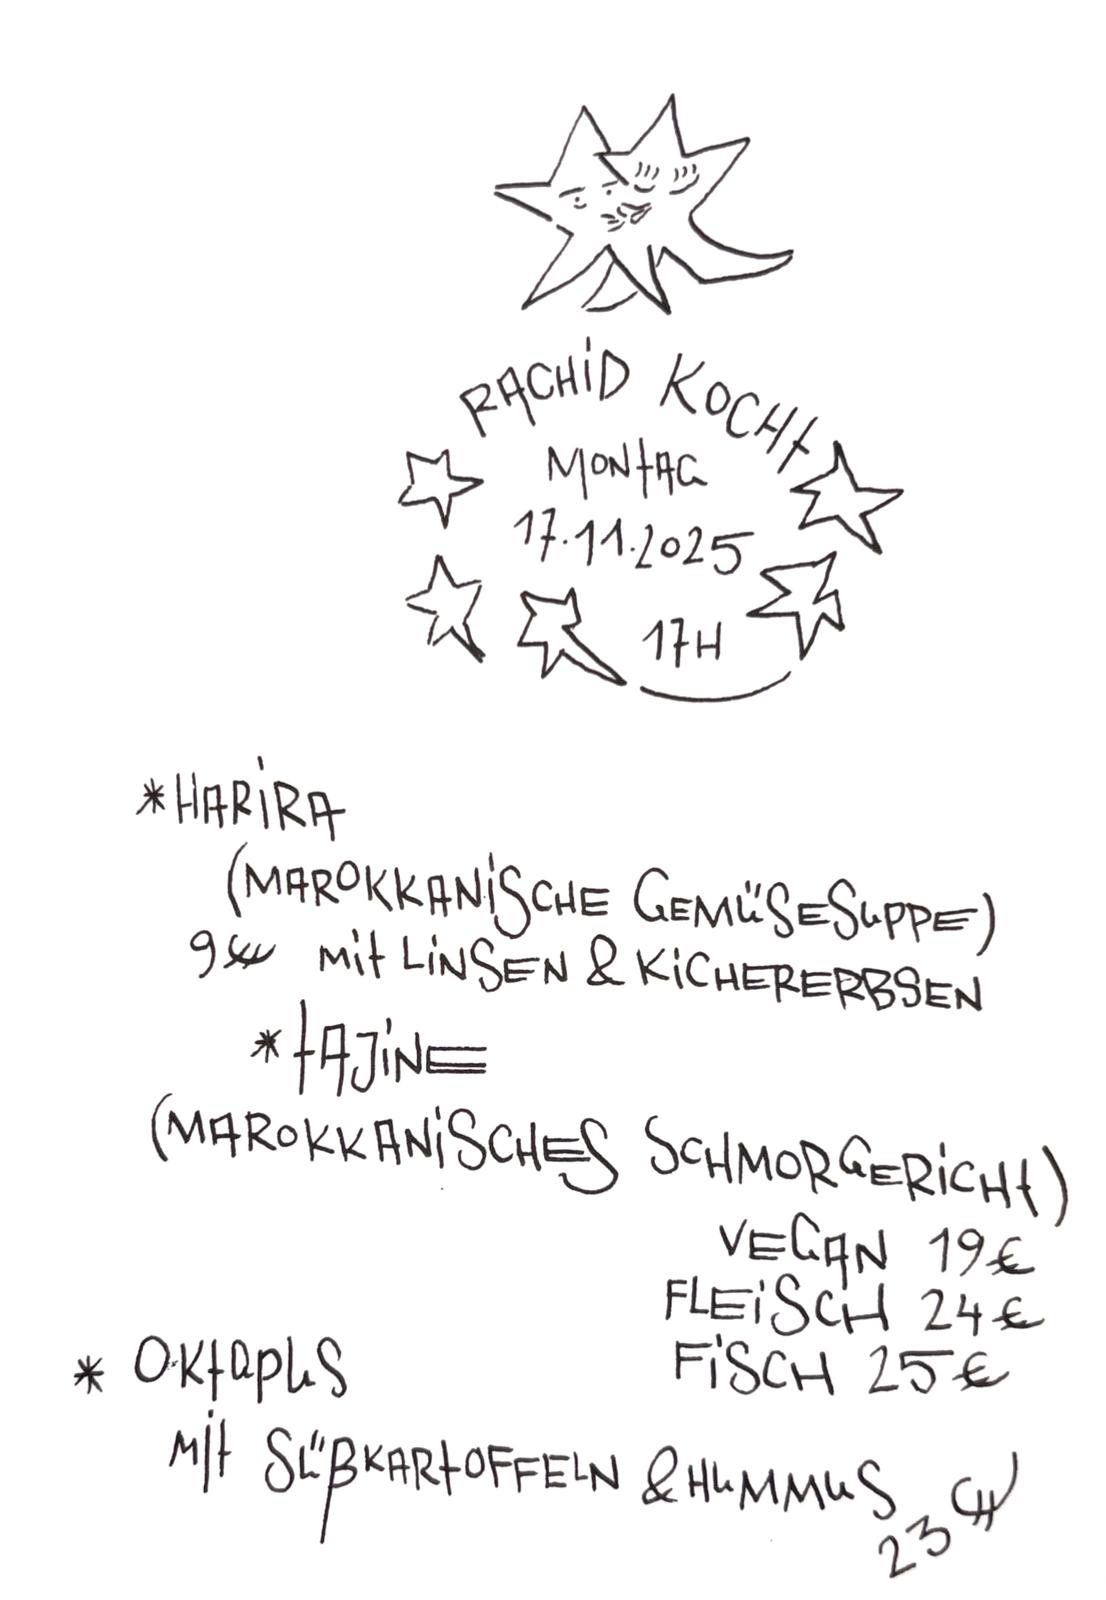 RACHiD KOCHt
MONtAG
17.11.2025
17H
*HARiRA
(MAROKKANiSCHE GEMÜSESUPPE)
9€ mit LiNSEN & KiCHERERBSEN
*tAJiNE
(MAROKKANiSCHES SCHMORGERiCHt)
VEGAN 19€
FLEiSCH 24€
FiSCH 25€
* OKtapus
Mit SÜßKARtOFFELN & HuMMuS
23€